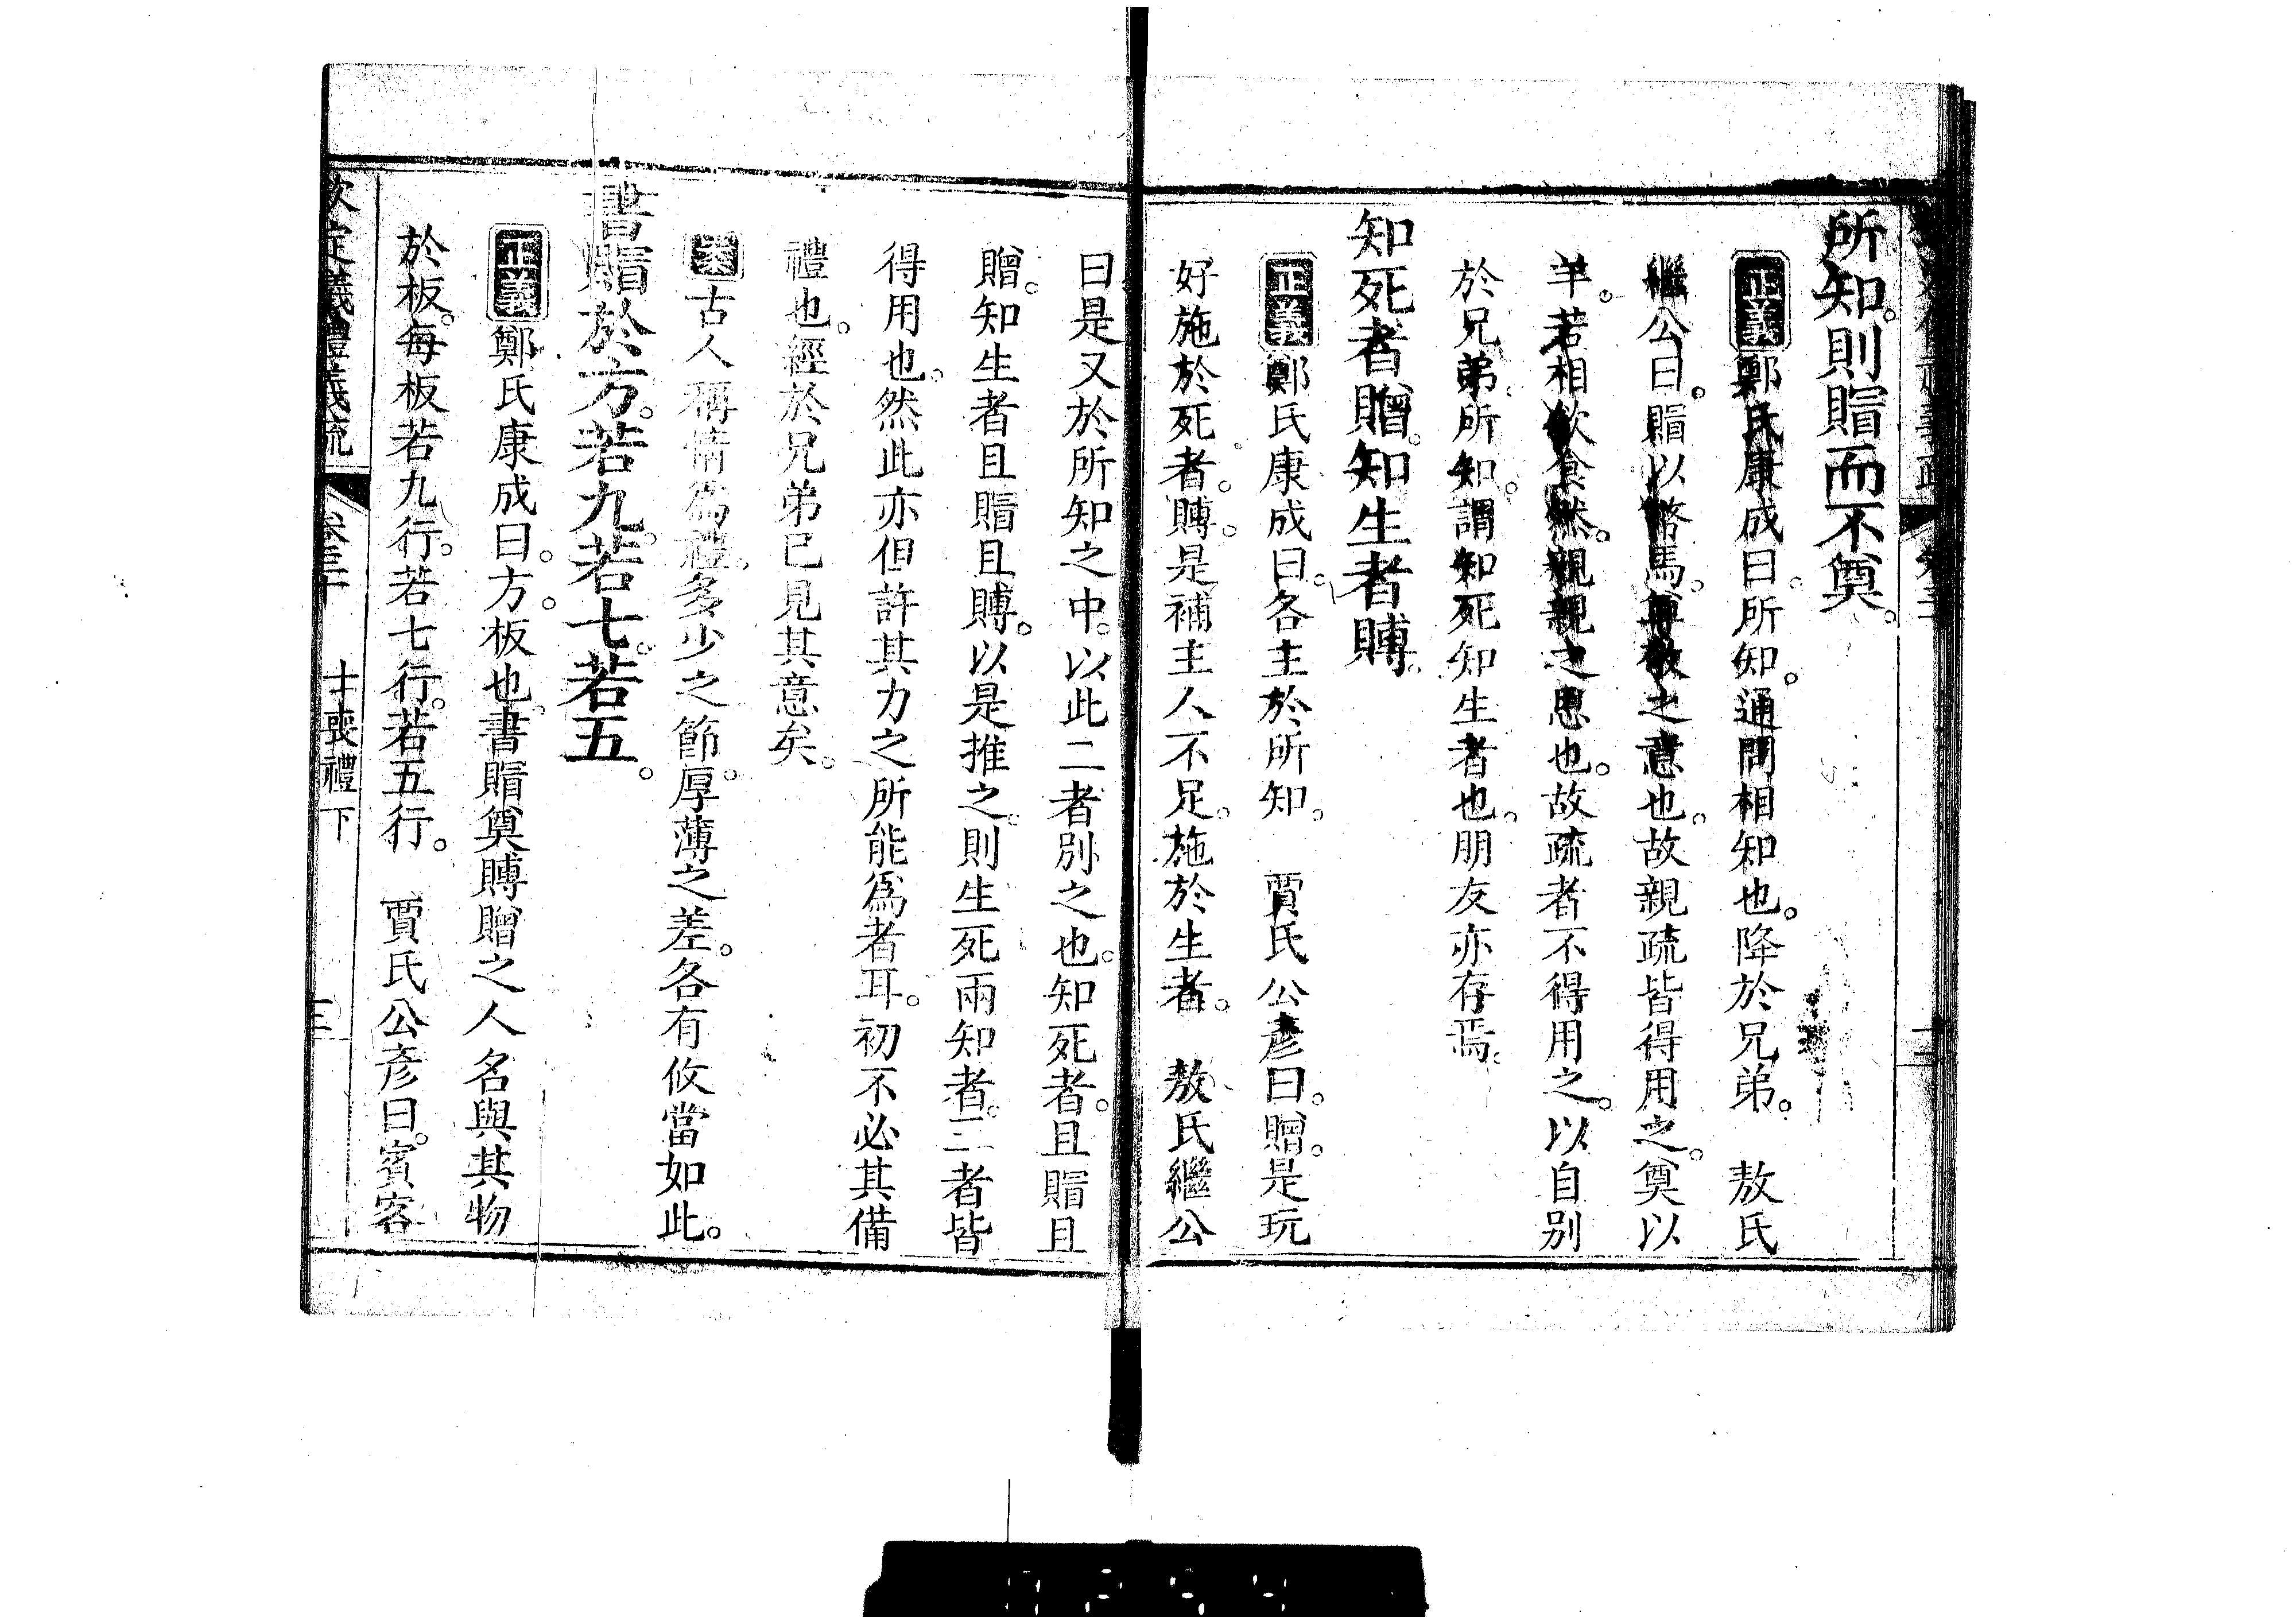 所知。則賵而不奠。
正義鄭氏康成曰。所知。通問相知也。降於兄弟。 敖氏
繼公曰。賵以幣馬。尊敬之意也。故親疏皆得用之。奠以
羊。若相飲食然。親親之恩也。故疏者不得用之。以自別
於兄弟。所知。謂知死知生者也。朋友亦存焉。
知死者贈。知生者賻。
正義鄭氏康成曰。各主於所知。 賈氏公彥曰。贈。是玩
好施於死者。賻。是補主人不足。施於生者。 敖氏繼公
曰是又於所知之中。以此二者別之也。知死者。且賵且
贈。知生者且賵且賻。以是推之。則生死兩知者。二者皆
得用也。然此亦但許其力之所能為者耳。初不必其備
禮也。經於兄弟已見其意矣。
案古人稱情為禮。多少之節。厚薄之差。各有攸當如此。
書賵於方。若九。若七。若五。
正義鄭氏康成曰。方。板也。書賵奠賻贈之人名與其物
於板。每板若九行。若七行。若五行。 賈氏公彥曰。賓客
欽定儀禮義疏 卷三十 士喪禮下 三